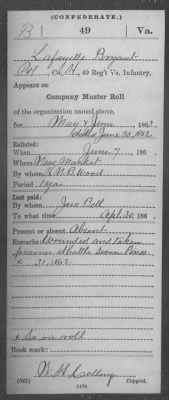 (CONFEDERATE.)
B 49 Va.
Lafayette Bryant
Pvt, Co. H, 49 Reg't Va. Infantry.
Appears on
Company Muster Roll
of the organization named above,
for May & June, 1862.
dated June 30, 1862
Enlisted:
When June 7, 186
Where New Market
By whom R. W. B. Wood
Period 1 year
Last paid:
By whom Jno Bell
To what time Apl. 30, 186
Present or absent Absent
Remarks: Wounded and taken
prisoner at battle Seven Pines
31, 1862.
Book mark:
(642)
Copyist.